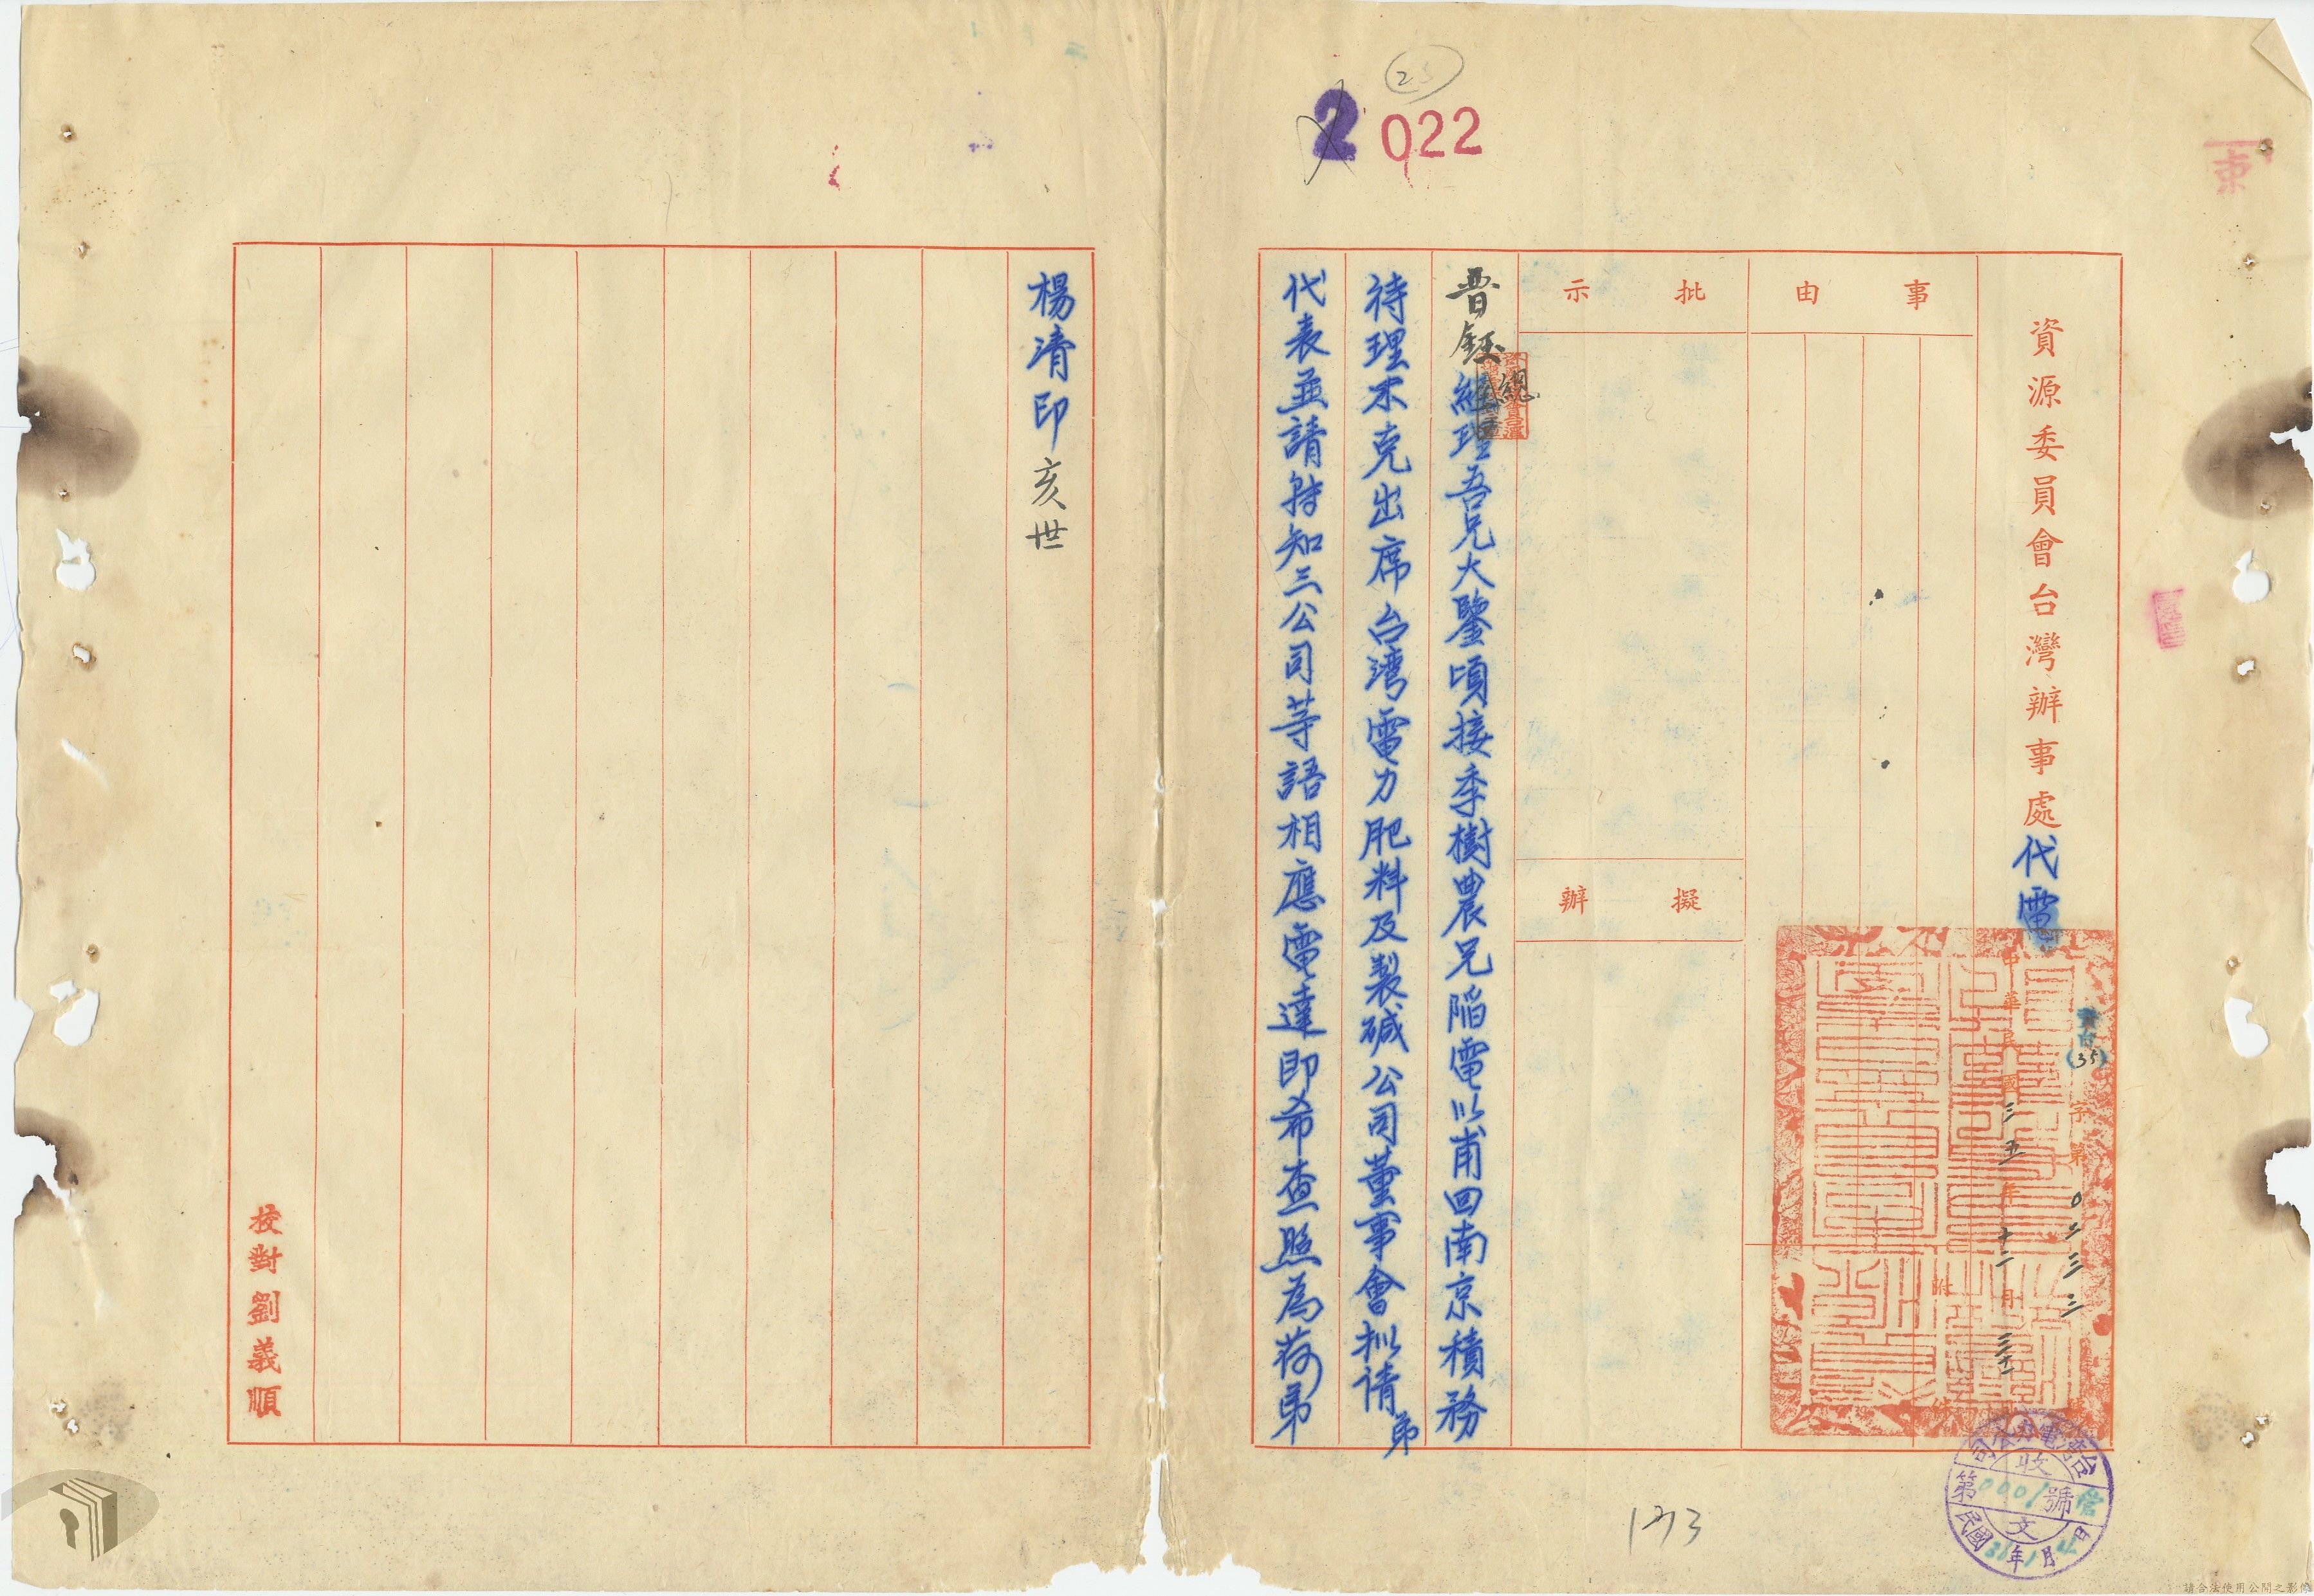 2 022
25
資源委員會台灣辦事處代電
資台(35)字第0二三三號
中華民國三五年十二月三十一日
附件
事由
批示
擬辦
晋鈺總經理吾兄大鑒頃接季樹農兄陷電以甫回南京積務
待理不克出席台湾電力肥料及製碱公司董事會拟请弟
代表並請轉知三公司等語相應電達即希查照為荷弟
楊清印亥世
校對劉義順
台灣電力公司
收文
第0001號
民國 年 月 日
173
請合法使用公開之影像